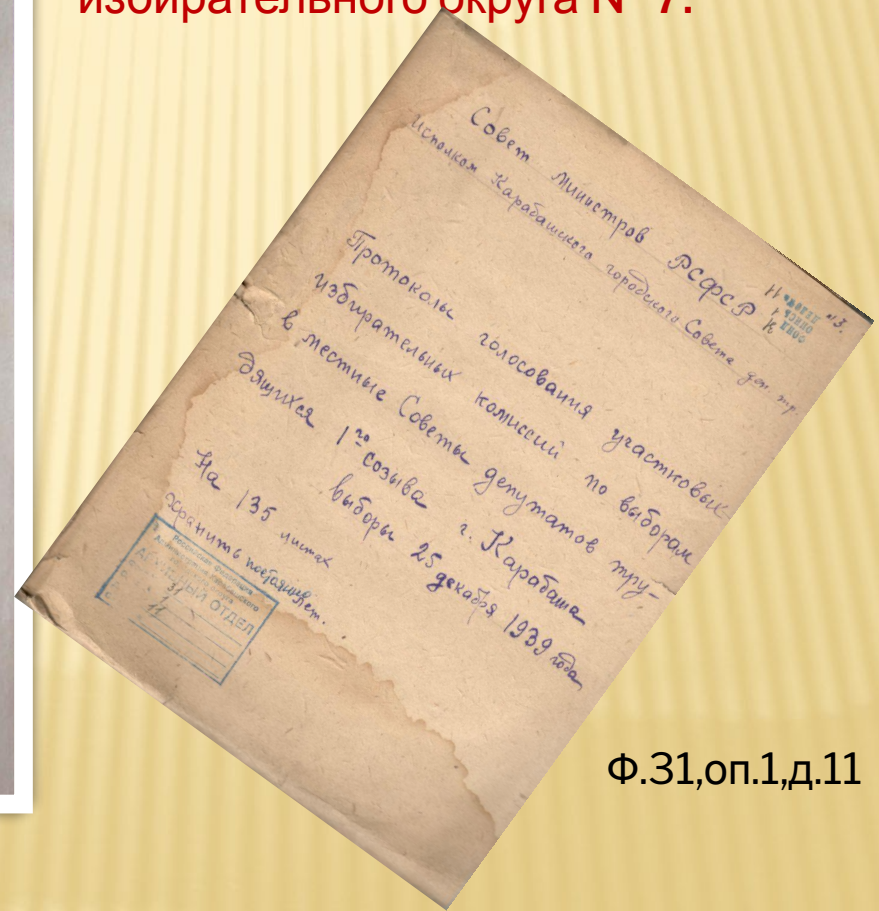 избирательного округа № 7.
Совет Министров РСФСР
Исполком Карабашского городского Совета деп. тр.
Протоколы голосования участковых
избирательных комиссий по выборам
в местные Советы депутатов тру-
дящихся 1го созыва г. Карабаша
выборы 25 декабря 1939 года
На 135 листах
Хранить постоянно
АРХИВНЫЙ ОТДЕЛ
31
11
Ф.31,оп.1,д.11